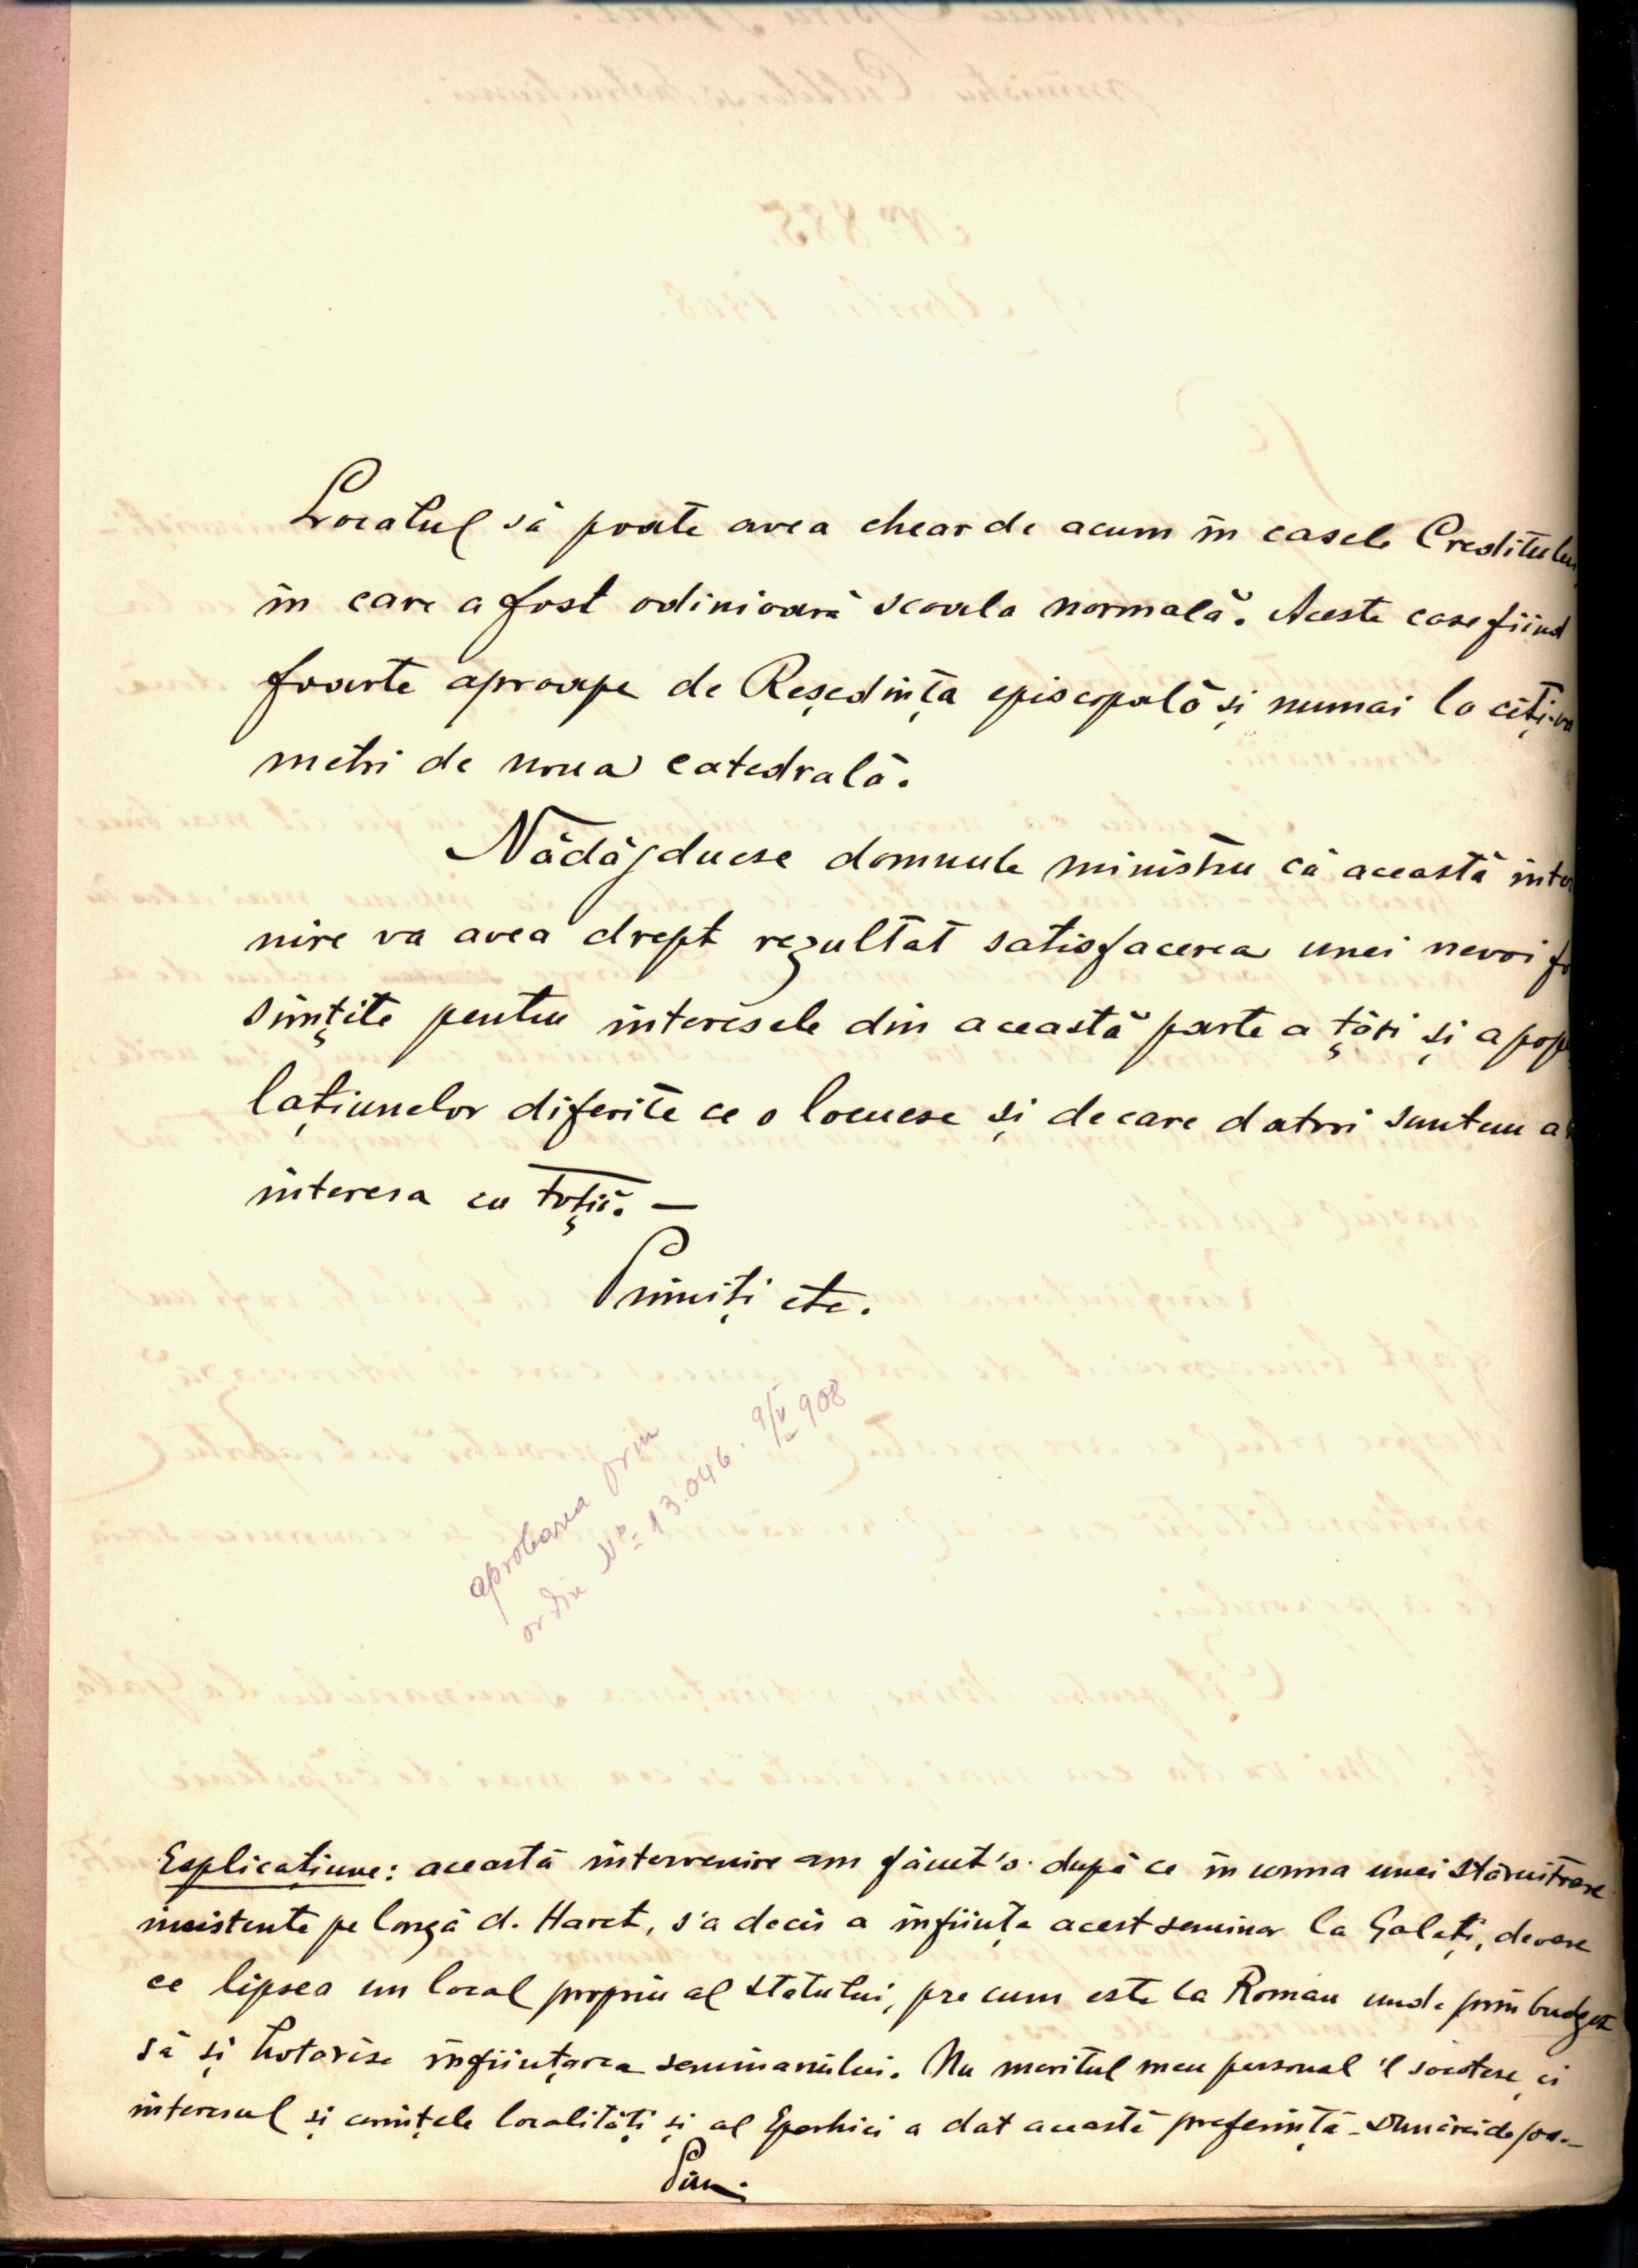 Localul să poate avea chear de acum in casele Creditului,
in care a fost odinioară scoala normală. Aceste case fiind
foarte aproape de Reședința episcopală și numai la cîți-va
metri de noua catedrală.
Nădăjduesc domnule ministru că această inter
nire va avea drept rezultat satisfacerea unei nevoi
simțite pentru interesele din această parte a țări și a popu
lațiunelor diferite ce o locuesc și de care datori suntem a
interesa cu toții. —
Primiți etc.
aprobarea prin
ordin No 13.046. 9/V 908
Esplicațiune: această intervenire am făcut'o după ce in urma unei stăruitoare
insistente pe longă d. Haret, s'a decis a inființa acest seminar la Galați, deoare
ce lipsea un local propriu al statului, precum este la Roman unde prin budget
să și hotarîse inființarea seminarului. Nu meritul meu personal 'l socotesc, ci
interesul și cerințele localități și al Eparhiei a dat această preferință Dunărei de jos.—
Pim.